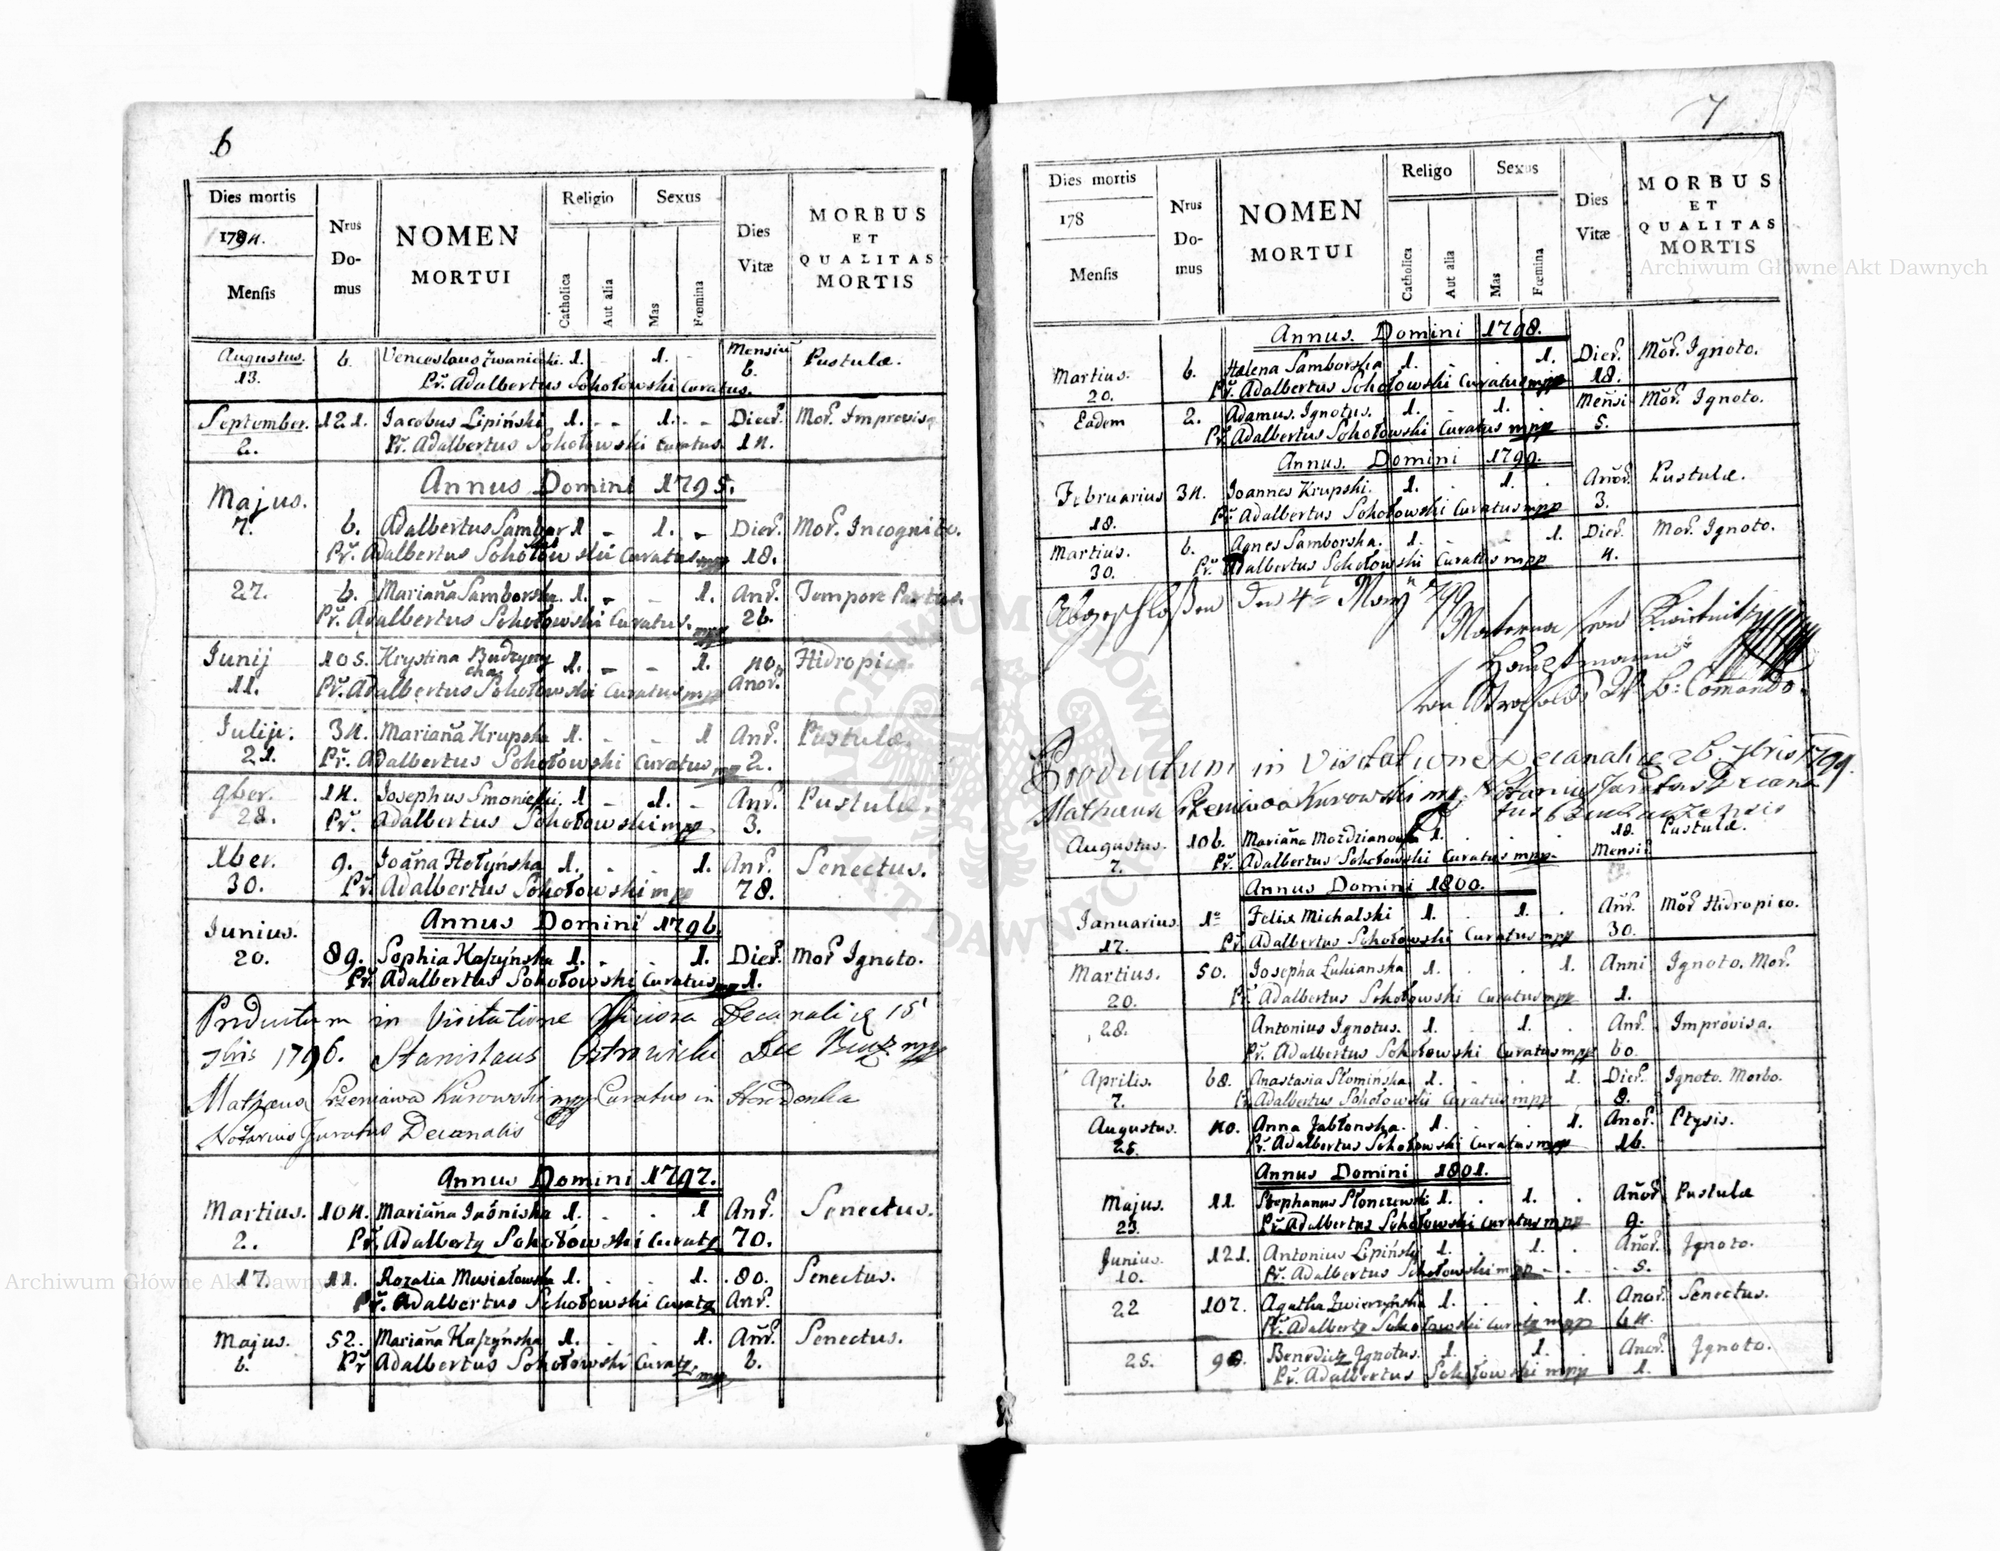 6
Dies mortis
1794.
Mensis
Nrus Do- mus
NOMEN
MORTUI
Religio
Catholica
Aut alia
Sexus
Mas
Fœmina
Dies
Vitæ
MORBUS
ET
QUALITAS
MORTIS
Augustus. 6. Venceslaus 1. - 1. - Mensiū Pustulæ.
13. Pr. Adalbertus Sokołowski Curatus. 6.
September. 121. Jacobus Lipiński 1. - 1. - Dier. Mor. Improvisa
2. Pr. Adalbertus Sokołowski Curatus. 14.
Annus Domini 1795.
Majus.
7. 6. Adalbertus Sambor 1 - 1. - Dier. Mor. Incognito.
Pr. Adalbertus Sokołowski Curatus mpp 18.
27. 6. Marianna Samborska. 1. - - 1. Anr. Tempore Partus.
Pr. Adalbertus Sokołowski Curatus. mpp 26.
Junij 105. Krystina Budzyny 1. - - 1. 40. Hidropica
cha
11. Pr. Adalbertus Sokołowski Curatus mpp Anor.
Julij. 34. Marianna Krupska 1. - - 1 Anr. Pustulæ.
21. Pr. Adalbertus Sokołowski Curatus mpp 2.
9ber. 14. Josephus 1 - 1. - Anr. Pustulæ.
28. Pr. Adalbertus Sokołowski mpp 3.
1ber. 9. Joanna Hołyńska 1. . . 1. Anr. Senectus.
30. Pr. Adalbertus Sokołowski mpp 78.
Annus Domini 1796.
Junius.
20. 89. Sophia Kaszyńska 1. . . 1. Dier. Mor Ignoto.
Pr. Adalbertus Sokołowski Curatus mpp 1.
Productum in Visitatione Decanali 15
7bris 1796. Stanislaus Ostrowicki Dec mpp
Mathæus Krzeniawa Kurowski mpp Curatus in Horodenka
Notarius Juratus Decanalis
Annus Domini 1797.
Martius. 104. Marianna 1. . . 1 Anr. Senectus.
2. Pr. Adalberty Sokołowski Curaty 70.
17. 11. Rozalia Musiałowska 1. . . 1. 80. Senectus.
Pr. Adalbertus Sokołowski Curaty Anr.
Majus. 52. Marianna Kaszyńska 1. . . 1. Anr. Senectus.
6. Pr Adalbertus Sokołowski Curaty. mpp 6.
7
Dies mortis
178
Mensis
Nrus Do- mus
NOMEN
MORTUI
Religo
Catholica
Aut alia
Sexus
Mas
Fœmina
Dies
Vitæ
MORBUS
ET
QUALITAS
MORTIS
Annus. Domini 1798.
Martius. 6. Helena Samborska 1. . . 1. Dier. Mor. Ignoto.
20. Pr. Adalbertus Sokołowski Curatus mpp 18.
Eadem 2. Adamus. Ignotus. 1. . 1. . Mensi Mor. Ignoto.
Pr. Adalbertus Sokołowski Curatus mpp 5.
Annus. Domini 1799.
Februarius 34. Joannes Krupski. 1. . 1. . Anor. Pustulæ.
18. Pr. Adalbertus Sokołowski Curatus mpp 3.
Martius. 6. Agnes Samborska. 1. . . 1. Dier. Mor. Ignoto.
30. Pr. Adalbertus Sokołowski Curatus mpp 4.
Abgeschloßen den 4t May 799
Materna von Kwietnitz
Hauptmann
von Strasoldo Comando.
Productum in Visitatione Decanali 26. 7bris 1799.
Mathæus Krzeniawa Kurowski mpp Notarius Juratus Decana
tus
Augustus. 106. Marianna 1. . . . 18. Pustulæ.
7. Pr. Adalbertus Sokołowski Curatus mpp. Mensi
Annus Domini 1800.
Januarius. 1º Felix Michalski 1. . 1. . Anr. Mor Hidropico.
17. Pr. Adalbertus Sokołowski Curatus mpp 30.
Martius. 50. Josepha Łukianska 1. . . 1. Anni Ignoto. Mor.
20. Pr. Adalbertus Sokołowski Curatus mpp 1.
28. Antonius Ignotus. 1. . 1. . Anr. Improvisa.
Pr. Adalbertus Sokołowski Curatus mpp 60.
Aprilis. 68. Anastasia Słomińska 1. . . 1. Dier. Ignoto. Morbo.
7. Pr. Adalbertus Sokołowski Curatus mpp 8.
Augustus. 40. Anna Jabłonska. 1. . . 1. Anor. Ptysis.
25. Pr. Adalbertus Sokołowski Curatus mpp 16.
Annus Domini 1801.
Majus. 11. Stephanus Słonczewski 1. . 1. . Anor Pustulæ
23. Pr. Adalbertus Sokołowski Curatus mpp 9.
Junius. 121. Antonius Lipiński 1. . 1. . Anor. Ignoto.
10. Pr. Adalbertus Sokołowski mpp 5.
22 107. Agatha Zwierzyńska 1. . . 1. Anor. Senectus.
Pr. Adalberty Sokołowski Curaty mpp 64.
25. 98. Benedicty Ignotus. 1. . 1. . Anor. Ignoto.
Pr. Adalbertus Sokołowski mpp 1.
Archiwum Główne Akt Dawnych
Archiwum Główne Akt Dawnych
ARCHIWUM GŁÓWNE AKT DAWNYCH